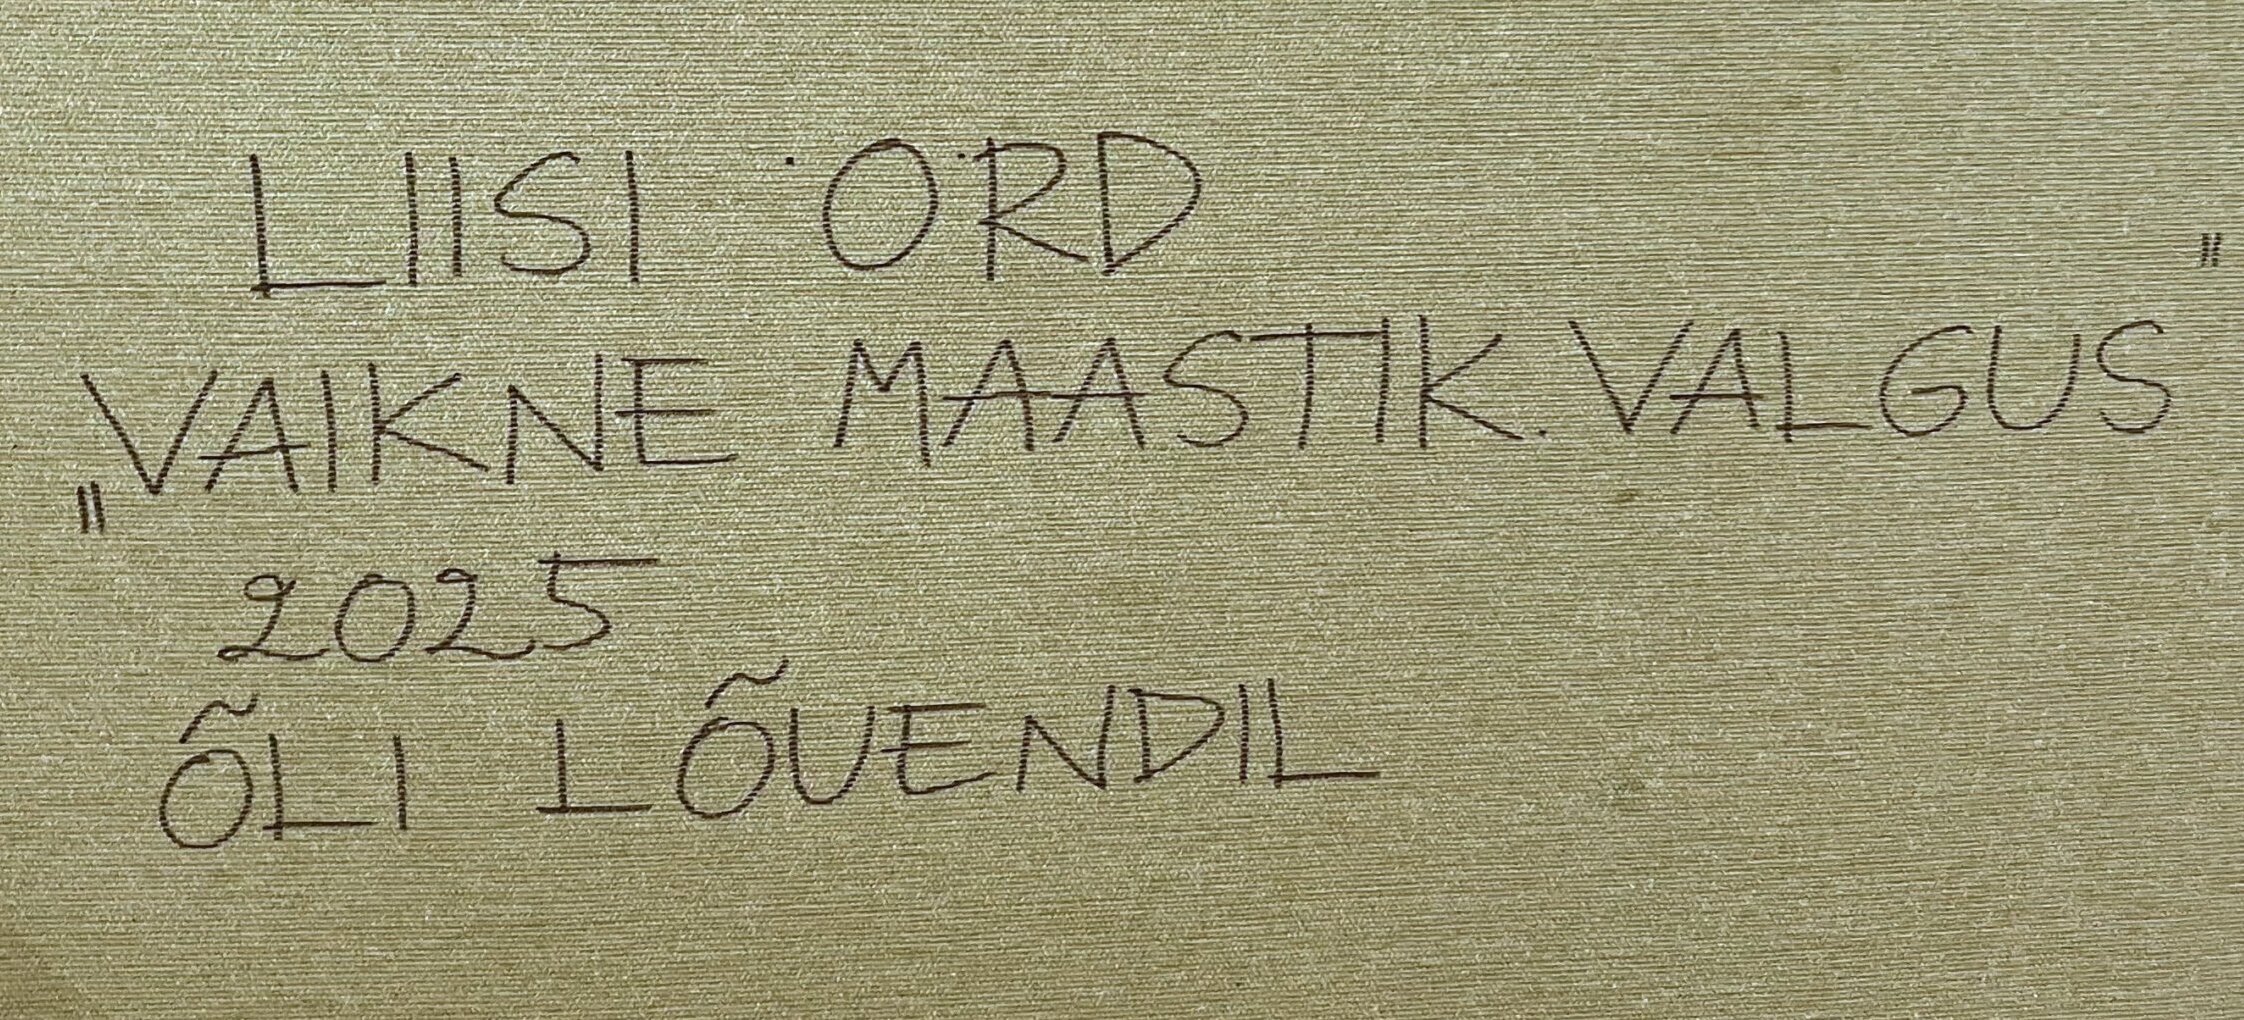 LIISI ÖRD
„VAIKNE MAASTIK. VALGUS"
2025
ÕLI LÕUENDIL